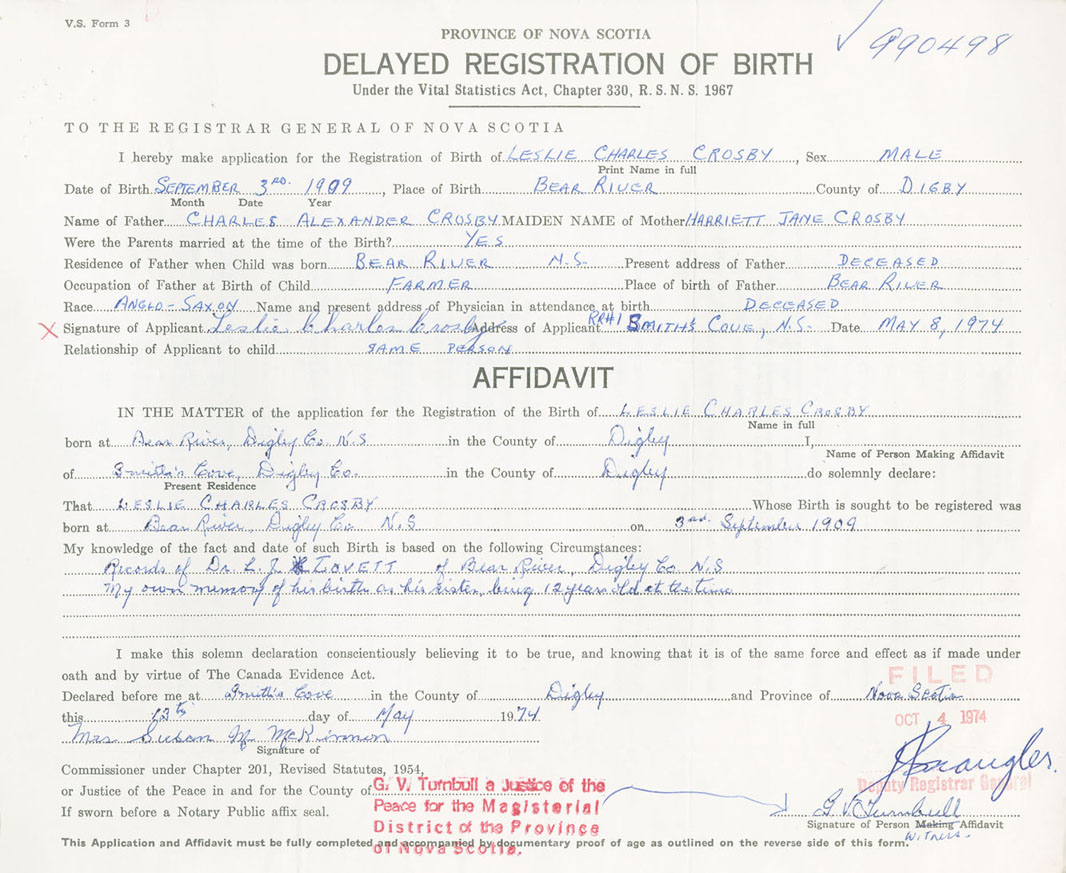 V.S. Form 3
990498
PROVINCE OF NOVA SCOTIA
DELAYED REGISTRATION OF BIRTH
Under the Vital Statistics Act, Chapter 330, R.S.N.S. 1967
TO THE REGISTRAR GENERAL OF NOVA SCOTIA
I hereby make application for the Registration of Birth of LESLIE CHARLES CROSBY, Sex MALE
Print Name in full
Date of Birth SEPTEMBER 3RD. 1909, Place of Birth BEAR RIVER County of DIGBY
Month Date Year
Name of Father CHARLES ALEXANDER CROSBY MAIDEN NAME of Mother HARRIETT JANE CROSBY
Were the Parents married at the time of the Birth? YES
Residence of Father when Child was born BEAR RIVER N.S. Present address of Father DECEASED
Occupation of Father at Birth of Child FARMER Place of birth of Father BEAR RIVER
Race ANGLO-SAXON Name and present address of Physician in attendance at birth DECEASED
X Signature of Applicant Leslie Charles Crosby Address of Applicant RR#1 SMITH'S COVE, N.S. Date MAY 8, 1974
Relationship of Applicant to child SAME PERSON
AFFIDAVIT
IN THE MATTER of the application for the Registration of the Birth of LESLIE CHARLES CROSBY
Name in full
born at Bear River, Digby Co. N.S in the County of Digby I,
Name of Person Making Affidavit
of Smith's Cove, Digby Co. in the County of Digby do solemnly declare:
Present Residence
That LESLIE CHARLES CROSBY Whose Birth is sought to be registered was
born at Bear River, Digby Co N.S on 3rd September 1909
My knowledge of the fact and date of such Birth is based on the following Circumstances:
Records of Dr. L. J. LOVETT of Bear River, Digby Co N.S
My own memory of his birth as his sister, being 12 years old at the time
I make this solemn declaration conscientiously believing it to be true, and knowing that it is of the same force and effect as if made under
oath and by virtue of The Canada Evidence Act.
FILED
Declared before me at Smith's Cove in the County of Digby and Province of Nova Scotia
this 13th day of May 1974
OCT 4 1974
Mrs Susan M McKinnon
Signature of
Commissioner under Chapter 201, Revised Statutes, 1954,
Deputy Registrar General
or Justice of the Peace in and for the County of G. V. Turnbull a Justice of the
Peace for the Magisterial
If sworn before a Notary Public affix seal.
G. V. Turnbull
Signature of Person Making Affidavit
Witness
District of the Province
of Nova Scotia.
This Application and Affidavit must be fully completed and accompanied by documentary proof of age as outlined on the reverse side of this form.